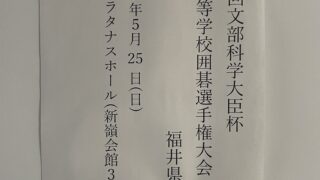 回文部科学大臣杯
等学校囲碁選手権大会
福井県
年5月25日(日)
ラタナスホール(新嶺会館3